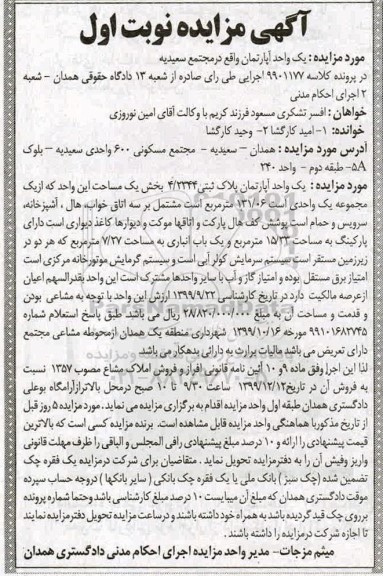 آگهی مزایده نوبت اول
مورد مزایده : یک واحد آپارتمان واقع درمجتمع سعیدیه
در پرونده کلاسه ۹۹۰۱۱۷۷ اجرایی طی رای صادره از شعبه ۱۳ دادگاه حقوقی همدان - شعبه
۲ اجرای احکام مدنی
خواهان : افسر تشکری مسعود فرزند کریم با وکالت آقای امین نوروزی
خوانده: ۱- امید کارگشا ۲- وحید کارگشا
آدرس مورد مزایده : همدان – سعیدیه - مجتمع مسکونی ۶۰۰ واحدی سعیدیه – بلوک
۵A- طبقه دوم - واحد ۲۴۰
مورد مزایده : یک واحد آپارتمان پلاک ثبتی ۴/۲۳۴۴ بخش یک مساحت این واحد که ازیک
مجموعه یک واحدی است ۱۳۱/۰۶ مترمربع است مشتمل بر سه اتاق خواب، هال ، آشپزخانه،
سرویس و حمام است پوشش کف هال پارکت و اتاقها موکت و دیوارها کاغذ دیواری است دارای
پارکینگ به مساحت ۱۵/۲۳ مترمربع و یک باب انباری به مساحت ۷/۲۷ مترمربع که هر دو در
زیرزمین مستقر است سیستم سرمایش کولر آبی است و سیستم گرمایش موتورخانه مرکزی است
امتیاز برق مستقل بوده و امتیاز گاز و آب با سایر واحدها مشترک است این واحد بقدرالسهم اعیان
ازعرصه مالکیت دارد در تاریخ کارشناسی ۱۳۹۹/۹/۲۲ ارزش این واحد با توجه به مشاعی بودن
و قدمت و مساحت آن به مبلغ ۲۸/۸۲۰/۰۰۰/۰۰۰ ریال می باشد طبق پاسخ استعلام شماره
۹۹۱۰۱۶۸۲۷۴۵ مورخه ۱۳۹۹/۱۰/۱۶ شهرداری منطقه یک همدان ازمحوطه مشاعی مجتمع
دارای تعریض می باشد مالیات برارث به دارائی بدهکار می باشد
لذا این اجرا وفق ماده ۹و ۱۰ آئین نامه قانونی افراز و فروش املاک مشاع مصوب ۱۳۵۷ نسبت
به فروش آن در تاریخ ۱۳۹۹/۱۲/۱۲ ساعت ۹/۳۰ تا ۱۰ صبح درمحل بالاترازآرامگاه بوعلی
دادگستری همدان طبقه اول واحد مزایده اقدام به برگزاری مزایده می نماید . مورد مزایده ۵ روز قبل
از تاریخ مذکوربا هماهنگی واحد مزایده قابل مشاهده است. برنده مزایده کسی است که بالاترین
قیمت پیشنهادی را ارائه و ۱۰ درصد مبلغ پیشنهادی رافی المجلس و الباقی را ظرف مهلت قانونی
واریز وفیش آن را به دفترمزایده تحویل نماید . متقاضیان برای شرکت درمزایده یک فقره چک
تضمین شده (چک سبز ) بانک ملی یا یک فقره چک بانکی ( سایر بانکها ) دروجه حساب سپرده
موقت دادگستری همدان که مبلغ آن میبایست ۱۰ درصد مبلغ کارشناسی باشد وحتما شماره پرونده
برروی چک قید گردیده باشد به همراه خود داشته باشند و درساعت مزایده تحویل دفترمزایده نمایند
تا اجازه شرکت درمزایده را داشته باشند .
میثم مزجات- مدیر واحد مزایده اجرای احکام مدنی دادگستری همدان